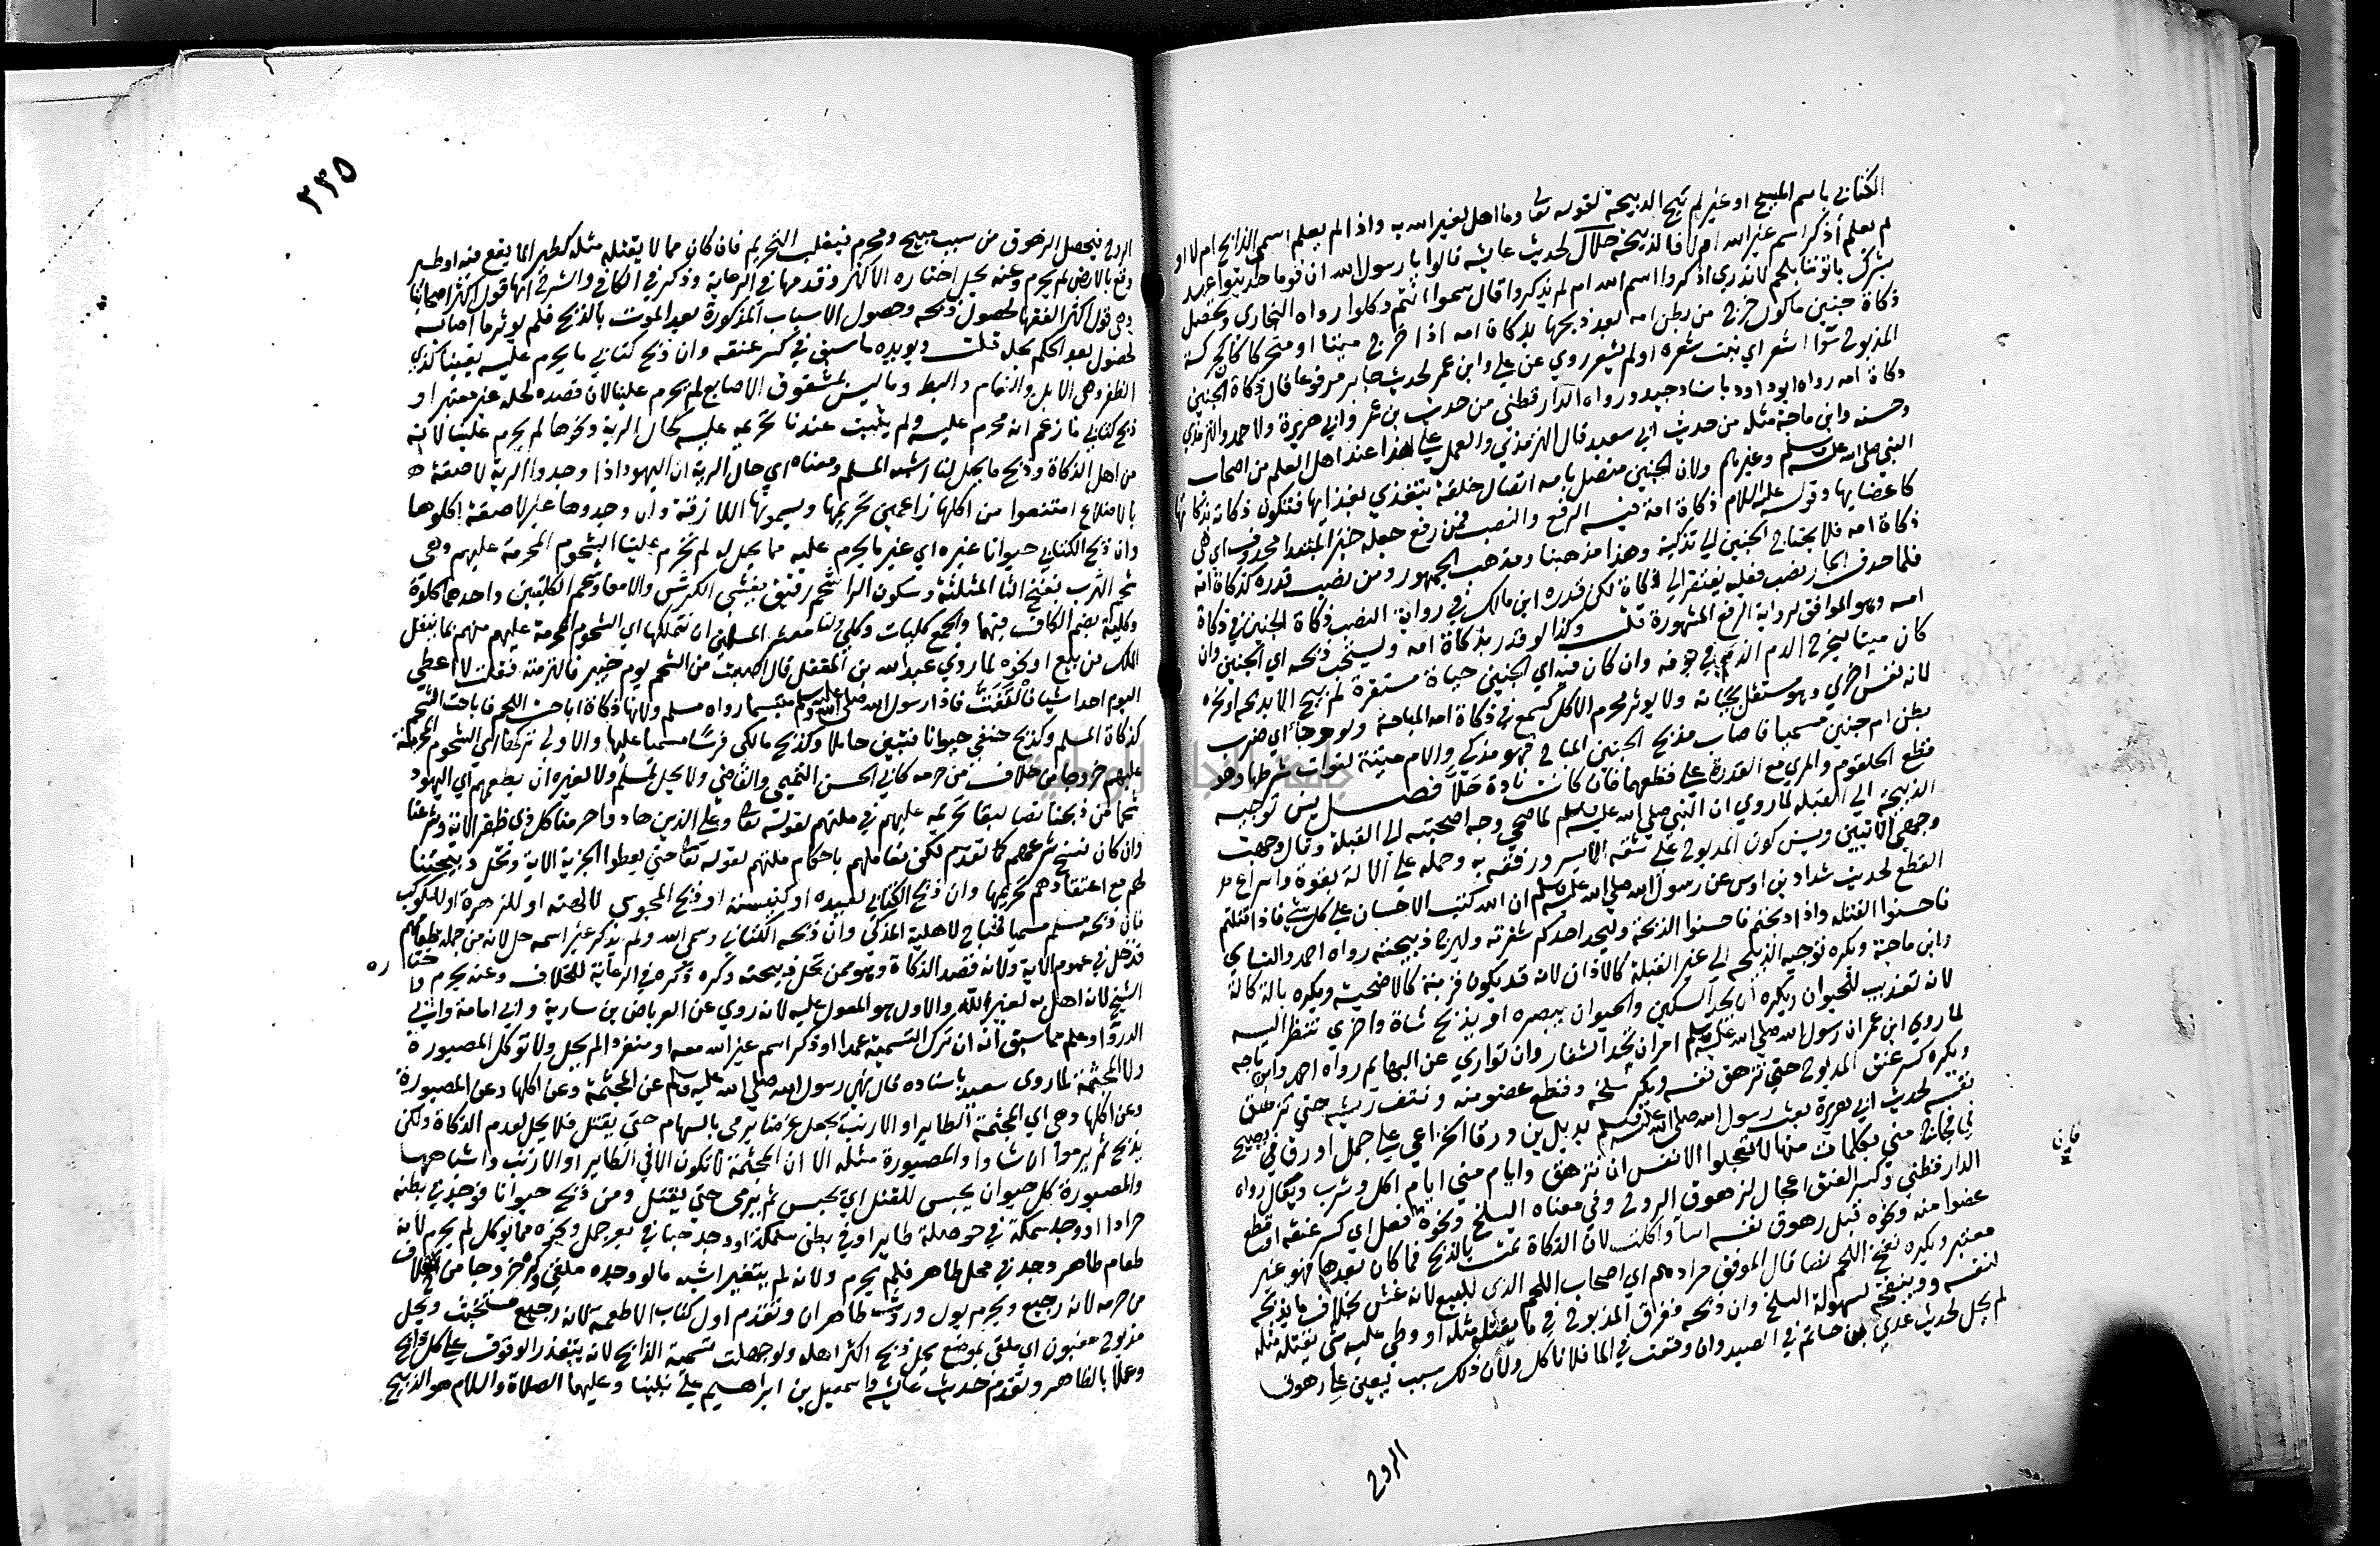 الكتابي باسم المسيح او غيره لم تبح الذبيحة لقوله تعالى وما اهل لغير الله به واذا لم يعلم اسمى الذابح ام لا او
لم يعلم أذكر اسم غير الله ام لا فالذبيحة حلال لحديث عايشة قالوا يا رسول الله ان قوما حديثوا عهد
بشرك ياتوننا بلحم لا ندري اذكروا اسم الله ام لم يذكروا قال سموا انتم وكلوا رواه البخاري وتحصل
ذكاة جنين ماكول خرج من بطن امه بعد ذبحها بذكاة امه اذا خرج ميتا او متحركا كحركة
المذبوح سوآ اشعر اي نبت شعره او لم يشعر روي عن علي وابن عمر لحديث جابر مرفوعا قال ذكاة الجنين
ذكاة امه رواه ابو داود باسناد جيد ورواه الدارقطني من حديث بن عمر وابي هريرة ولاحمد والترمذي
وحسنه وابن ماجة مثله من حديث ابي سعيد قال الترمذي والعمل على هذا عند اهل العلم من اصحاب
النبي صلى الله عليه وسلم وغيرهم ولان الجنين متصل بامه اتصال خلقة يتغذي بغذايها فتكون ذكاته بذكاتها
كاعضايها وقوله عليه السلام ذكاة امه فيه الرفع والنصب فمن رفع جعله خبر المبتدا محذوف اي هي
ذكاة امه فلا يحتاج الجنين الي تذكية وهذا مذهبنا ومذهب الجمهور ومن نصب قدره كذكاة امه
فلما حذف الجار نصب فعليه يفتقر الي ذكاة لكن قدره ابن مالك في رواية النصب ذكاة الجنين في ذكاة
امه وهو الموافق لرواية الرفع المشهورة قلت وكذا لو قدر بذكاة امه ويستحب ذبحه اي الجنين وان
كان ميتا ليخرج الدم الذي في جوفه وان كان فيه اي الجنين حياة مستقرة لم يبح الا بذبحه او نحره
لانه نفس اخري وهو مستقل بحياته ولا يوثر محرم الاكل كسمع في ذكاة امه المباحة ولو وجأ اي ضرب
بطن ام جنين مسميا فاصاب مذبح الجنين المباح فهو مذكي والام ميتة لفوات شرطها وهو
قطع الحلقوم والمري مع القدرة علي قطعهما فان كانت نادة حلا فصل يسن توجيه
الذبيحة الي القبلة لما روي ان النبي صلي الله عليه وسلم لما ضحي وجه اضحيته الي القبلة وقال وجهت
وجهي الايتين ويسن كون المذبوح علي شقه الايسر ورفقه به وحمله علي الالة بقوة واسراع
القطع لحديث شداد بن اوس عن رسول الله صلي الله عليه وسلم ان الله كتب الاحسان علي كل شي فاذا قتلتم
فاحسنوا القتلة واذا ذبحتم فاحسنوا الذبحة وليحد احدكم شفرته وليرح ذبيحته رواه احمد والنساي
وابن ماجة ويكره توجيه الذبيحة الي غير القبلة كالاذان لانه قد يكون قربة كالاضحية ويكره بالة كالة
لانه تعذيب للحيوان ويكره ان يحد السكين والحيوان يبصره او يذبح شاة واخري تنظر اليه
لما روي ابن عمر ان رسول الله صلي الله عليه وسلم امر ان تحد الشفار وان تواري عن البهايم رواه احمد وابن ماجه
ويكره كسر عنق المذبوح حتي تزهق نفسه ويكره سلخه وقطع عضو منه ونتف ريشه حتي تزهق
نفسه لحديث ابي هريرة بعث رسول الله صلى الله عليه وسلم بديل بن ورقا الخزاعي علي جمل اورق يصيح
في فجاج مني بكلمات منها الا لا تعجلوا الانفس ان تزهق وايام مني ايام اكل وشرب وبعال رواه
الدارقطني وكسر العنق اعجال لزهوق الروح وفي معناه السلخ ونحوه فان فعل اي كسر عنقه او قطع
عضوا منه ونحوه قبل زهوق نفسه اسا واكلت لان الذكاة تمت بالذبح فما كان بعدها فهو غير
معتبر ويكره نفخ اللحم نصا قال الموفق مرادهم اي اصحاب اللحم الذي للبيع لانه غش بخلاف ما يذبحه
لنفسه وينفخه لسهولة السلخ وان ذبحه فغرق المذبوح في ما يقتل مثله او وطي عليه شي يقتله مثله
لم يحل لحديث عدي بن حاتم في الصيد وان وقعت في الما فلا تاكل ولان ذلك سبب يعين علي زهوق
الروح
فان
٢٣٥
الروح فيحصل الزهوق من سبب مبيح ومحرم فيغلب التحريم فان كان مما لا يقتله مثله كطير الما يقع فيه او طير
وقع بالارض لم يحرم وعنه يحل اختاره الاكثر وقدمها في الرعاية وذكر في الكافي والشرح انها قول اكثر اصحابنا
وهي قول اكثر الفقها لحصول ذبحه وحصول الاسباب المذكورة بعد الموت بالذبح فلم يوثر ما اصابه
لحصول بعد الحكم بحله قلت ويويده ما سبق في كسر عنقه وان ذبح كتابي ما يحرم عليه يقينا كذي
الظفر وهي الابل والنعام والبط وما ليس بمشقوق الاصابع لم يحرم علينا لان قصده لحله غير معتبر او
ذبح كتابي ما زعم انه محرم عليه ولم يثبت عندنا تحريمه عليه كحال الرية ونحوها لم يحرم علينا لانه
من اهل الذكاة وذبح ما يحل لنا اشبه المسلم ومعناه اي حال الرية ان اليهود اذا وجدوا الرية لاصقة
بالاضلاع امتنعوا من اكلها زاعمين تحريمها ويسمونها اللازقة وان وجدوها غير لاصقة اكلوها
وان ذبح الكتابي حيوانا غيره اي غير ما يحرم عليه مما يحل له لم تحرم علينا الشحوم المحرمة عليهم وهي
شحم الثرب بفتح الثا المثلثة وسكون الرا شحم رقيق يغشي الكرش والامعا وشحم الكليتين واحدهما كلوة
وكلية بضم الكاف فيهما والجمع كليات وكلي ولنا معشر المسلمين ان نتملكها اي الشحوم المحرمة عليهم منهم بما ينقل
الملك من بيع او نحوه لما روي عبد الله بن المغفل قال اصبت من الشحم يوم خيبر فالتزمته فقلت لا اعطي
اليوم احدا شيا فالتفت فاذا رسول الله صلى الله عليه وسلم متبسما رواه مسلم ولانها ذكاة اباحت اللحم فاباحت الشحم
كذكاة المسلم وكذبح حنفي حيوانا فتبين حاملا وكذبح مالكي فرسا مسميا عليها والاولي تركها اي الشحوم المحرمة
عليهم خروجا من خلاف من حرمه كابي الحسن التميمي والقاضي ولا يحل لمسلم ولا لغيره ان يطعمهم اي اليهود
شحما من ذبحنا نصا لبقا تحريمه عليهم في ملتهم لقوله تعالى وعلي الذين هادوا حرمنا كل ذي ظفر الاية وشرعنا
وان كان نسخ شرعهم كما تقدم لكن نعاملهم باحكام ملتهم لقوله تعالى حتي يعطوا الجزية الاية وتحل ذبيحتنا
لهم مع اعتقادهم تحريمها وان ذبح الكتابي لعيده او كنيسته او ذبح المجوسي لالهته او للزهرة او للكوكب
فان ذبحه مسلم مسميا فمباح لاهلية المذكي وان ذبحه الكتابي وسمي الله ولم يذكر غير اسمه حل لانه من جملة طعامهم
فدخل في عموم الاية ولانه قصد الذكاة وهو ممن تحل ذبيحته وكره ذكره في الرعاية للخلاف وعنه يحرم واختاره
الشيخ لانه اهل به لغير الله والاول هو المعول عليه لانه روي عن العرباض بن سارية وابي امامة وابي
الدردا وعلم مما سبق انه ان ترك التسمية عمدا او ذكر اسم غير الله معه او منفردا لم يحل ولا توكل المصبورة
ولا المجثمة لما روى سعيد باسناده قال نهي رسول الله صلى الله عليه وسلم عن المجثمة وعن اكلها وعن المصبورة
وعن اكلها وهي اي المجثمة الطاير او الارنب يجعل غرضا يرمى بالسهام حتي يقتل فلا يحل لعدم الذكاة ولكن
يذبح ثم يرموا ان شاوا والمصبورة مثله الا ان المجثمة لا تكون الا في الطاير او الارنب واشباهها
والمصبورة كل حيوان يحبس للقتل اي يحبس ثم يرمى حتي يقتل ومن ذبح حيوانا فوجد في بطنه
جرادا او وجد سمكة في حوصلة طاير او في بطن سمكة او وجد حبا في بعر جمل ونحوه مما يوكل لم يحرم لانه
طعام طاهر وجد في محل طاهر فلم يحرم ولانه لم يتغير اشبه ما لو وجده ملقي وكره خروجا من خلاف
من حرمه لانه رجيع ويحرم بول وروث طاهران وتقدم اول كتاب الاطعمة لانه رجيع مستخبث ويحل
مذبوح منبوذ اي ملقى بموضع يحل ذبح اكثر اهله ولو جهلت تسمية الذابح لانه يتعذر الوقوف علي كل ذابح
وعملا بالظاهر وتقدم حديث عايشه واسمعيل بن ابراهيم علي نبينا وعليهما الصلاة والسلام هو الذبيح